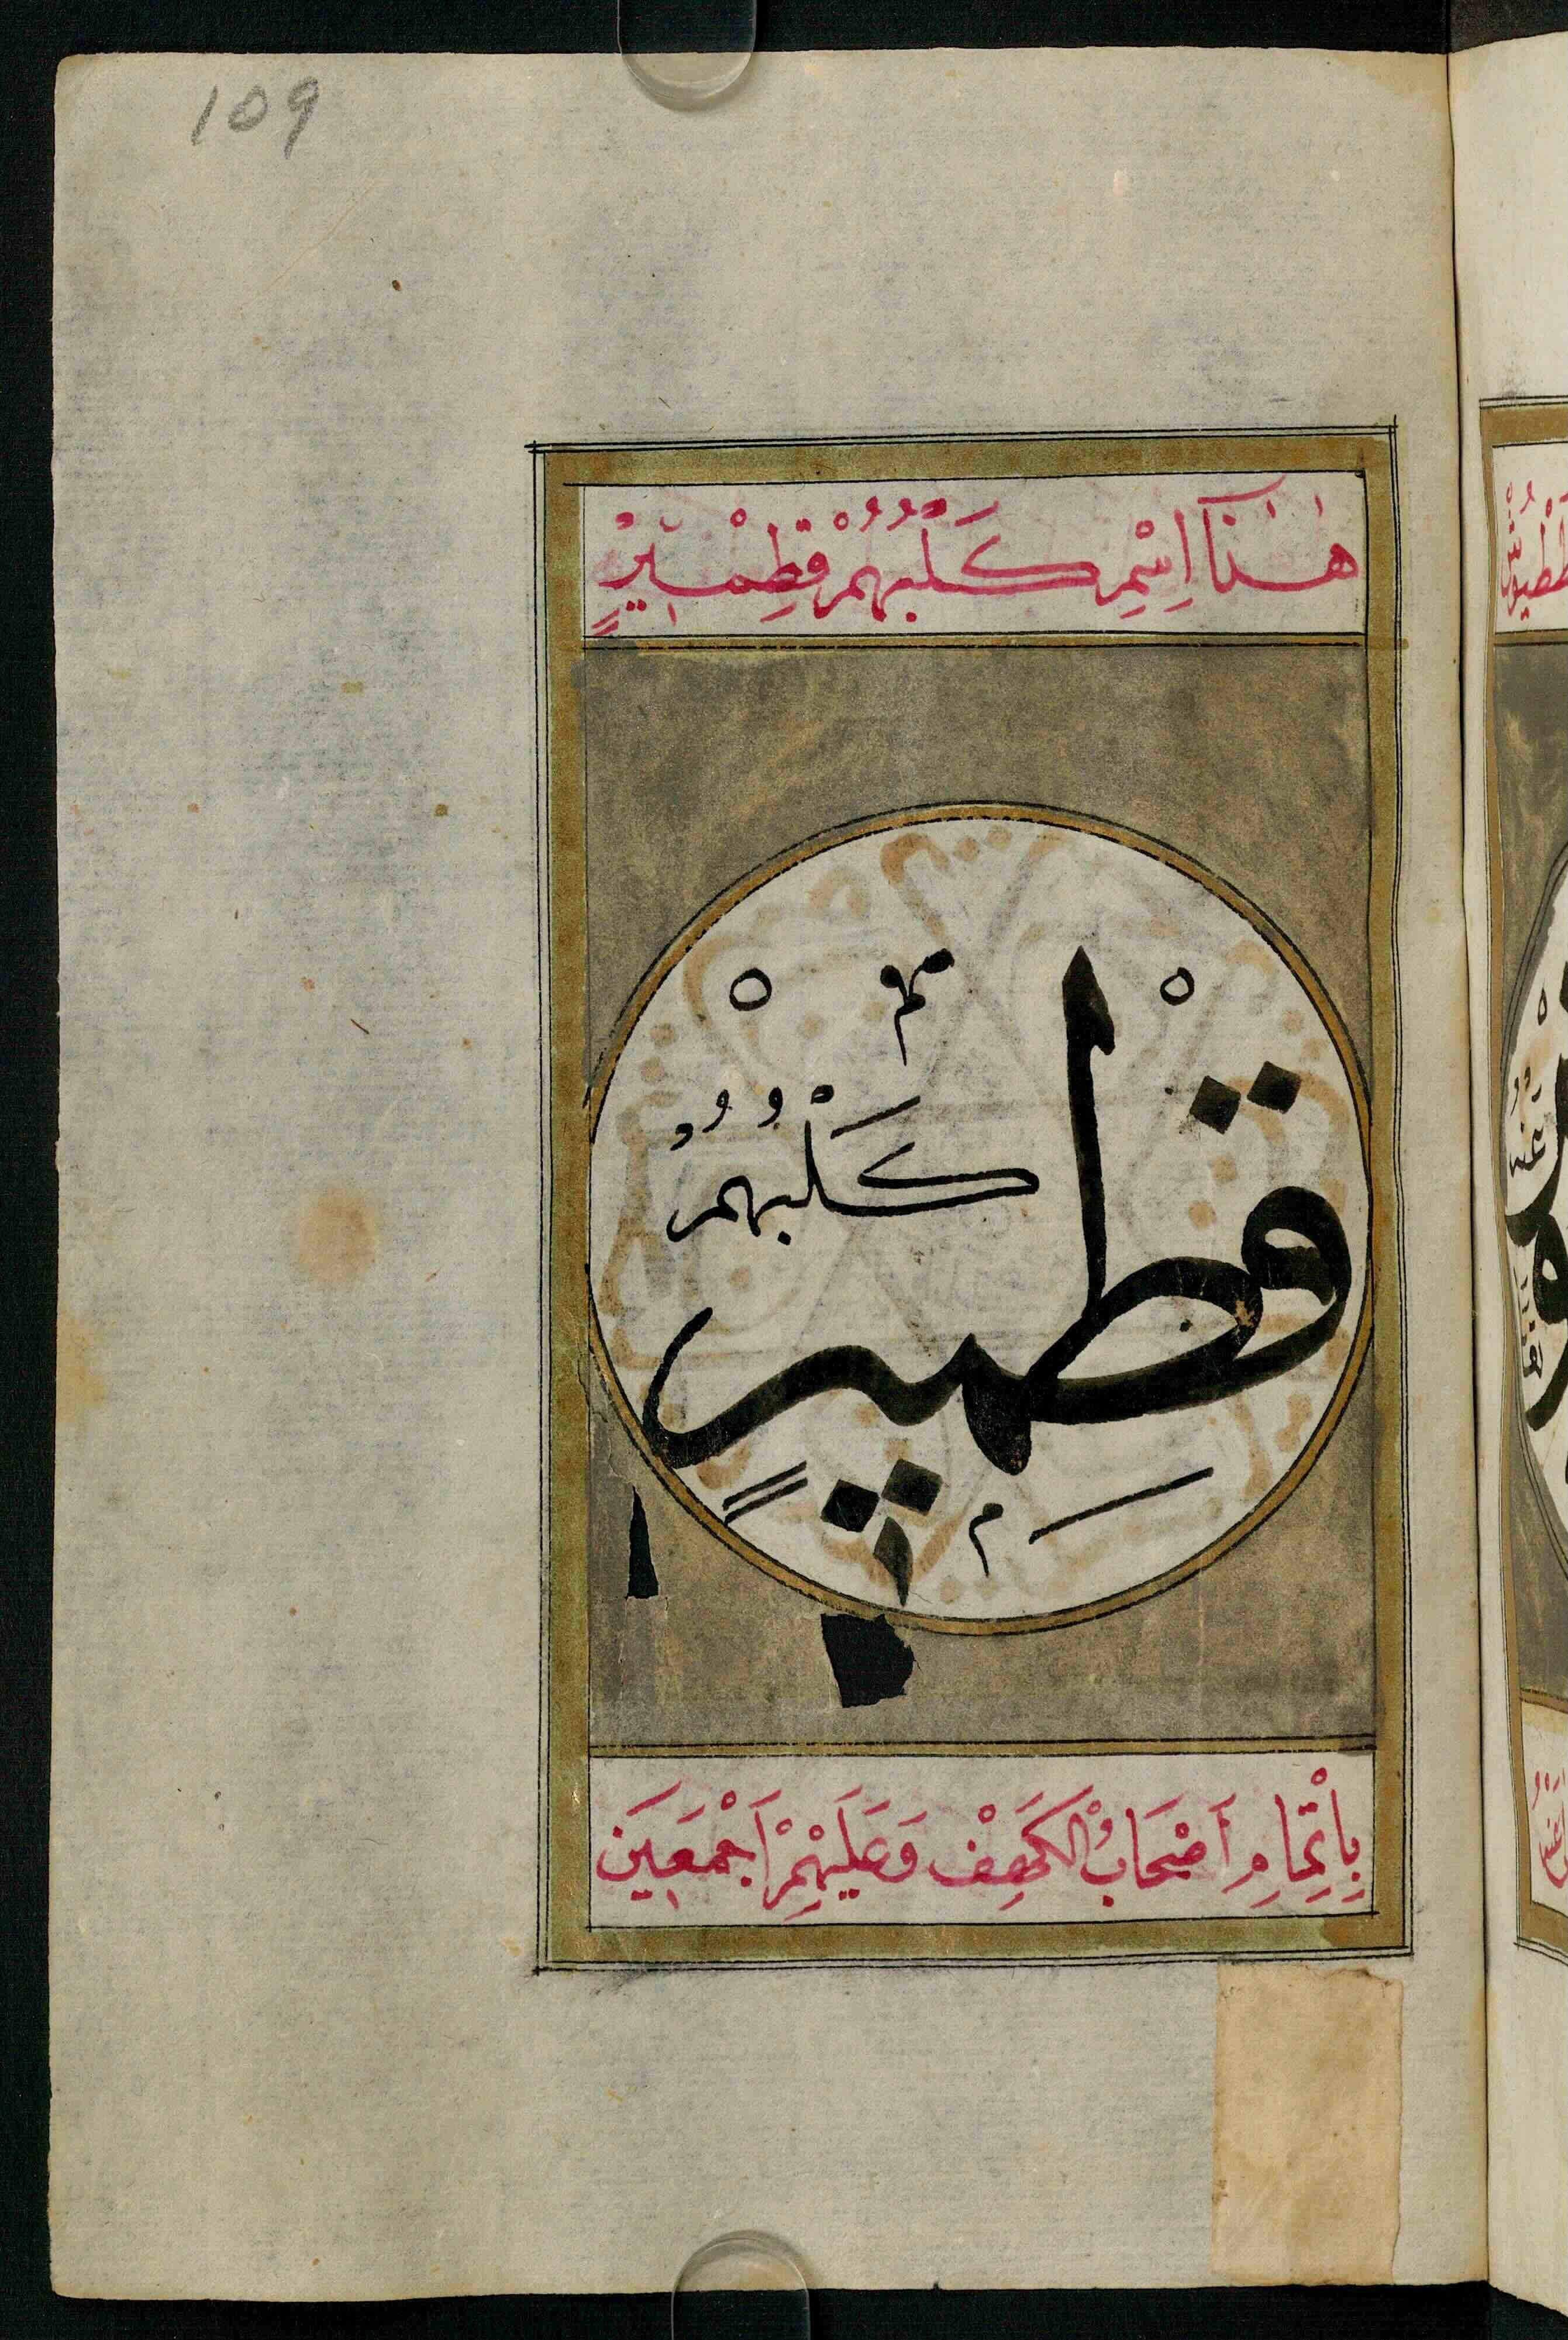 109
هٰذَا اِسْمِ كَلْبُهُمْ قِطْمِيرٍ
قطمير
كَلْبُهُمْ
بِاتْمَامِ اَصْحَابُ الْكَهَفْ وَعَلَيْهِمْ اَجْمَعِينَ